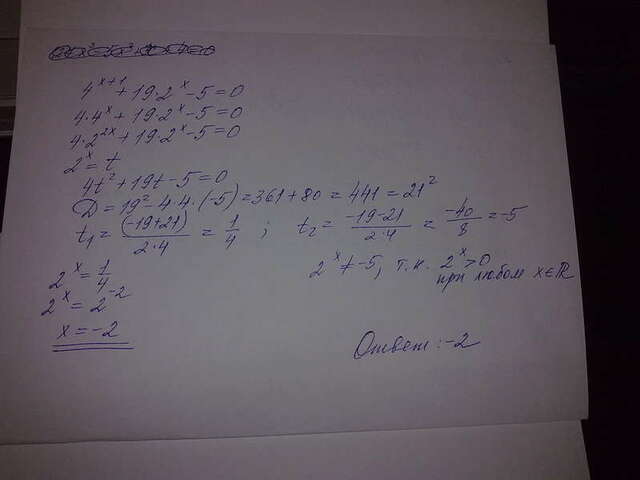 4^(x+1) + 19·2^x - 5 = 0
4·4^x + 19·2^x - 5 = 0
4·2^(2x) + 19·2^x - 5 = 0
2^x = t
4t² + 19t - 5 = 0
D = 19² - 4·4·(-5) = 361 + 80 = 441 = 21²
t₁ = (-19+21)/(2·4) = 1/4 ; t₂ = (-19-21)/(2·4) = -40/8 = -5
2^x = 1/4
2^x ≠ -5, т.к. 2^x > 0
при любом x∈ℝ
2^x = 2^(-2)
x = -2
Ответ: -2